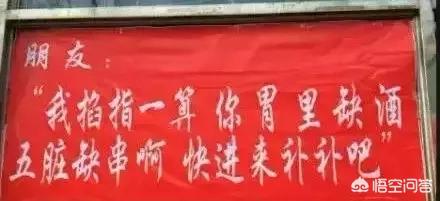 朋友：
“我掐指一算 你胃里缺酒
五脏缺串啊 快进来补补吧”
悟空问答